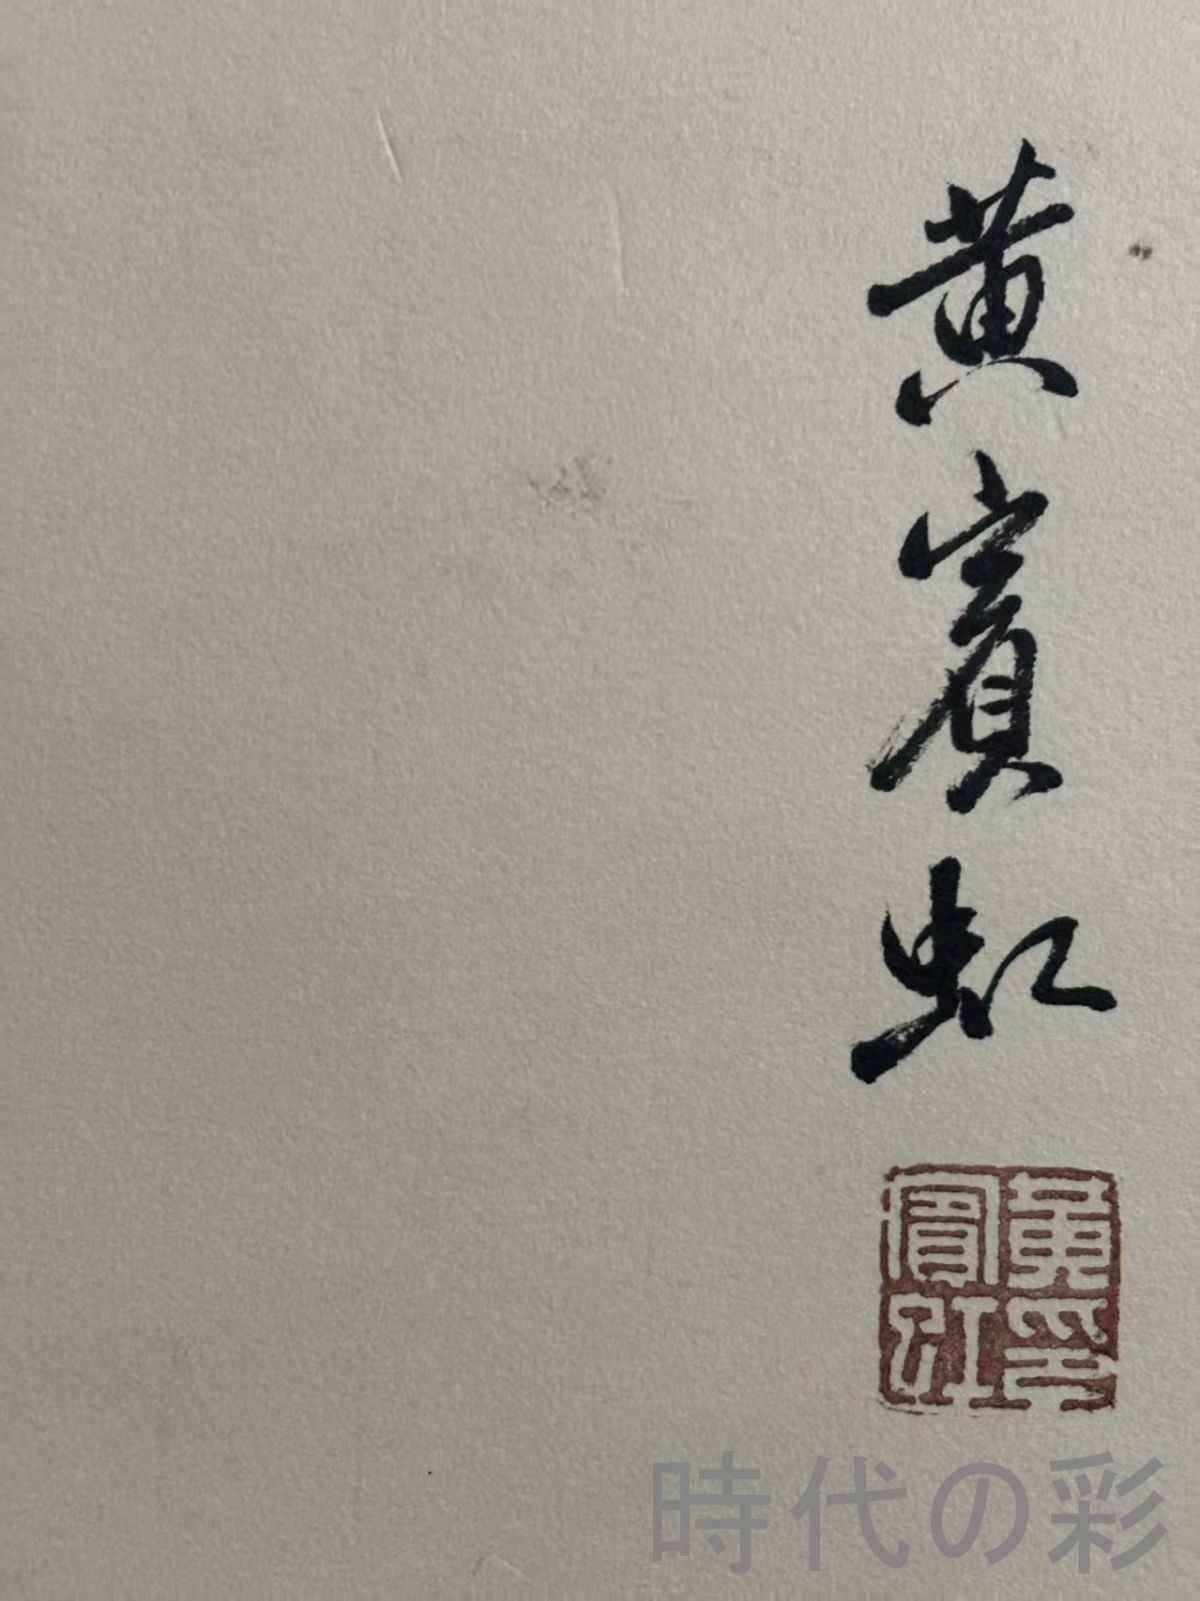 黄賓虹
黃印
賓虹
時代の彩